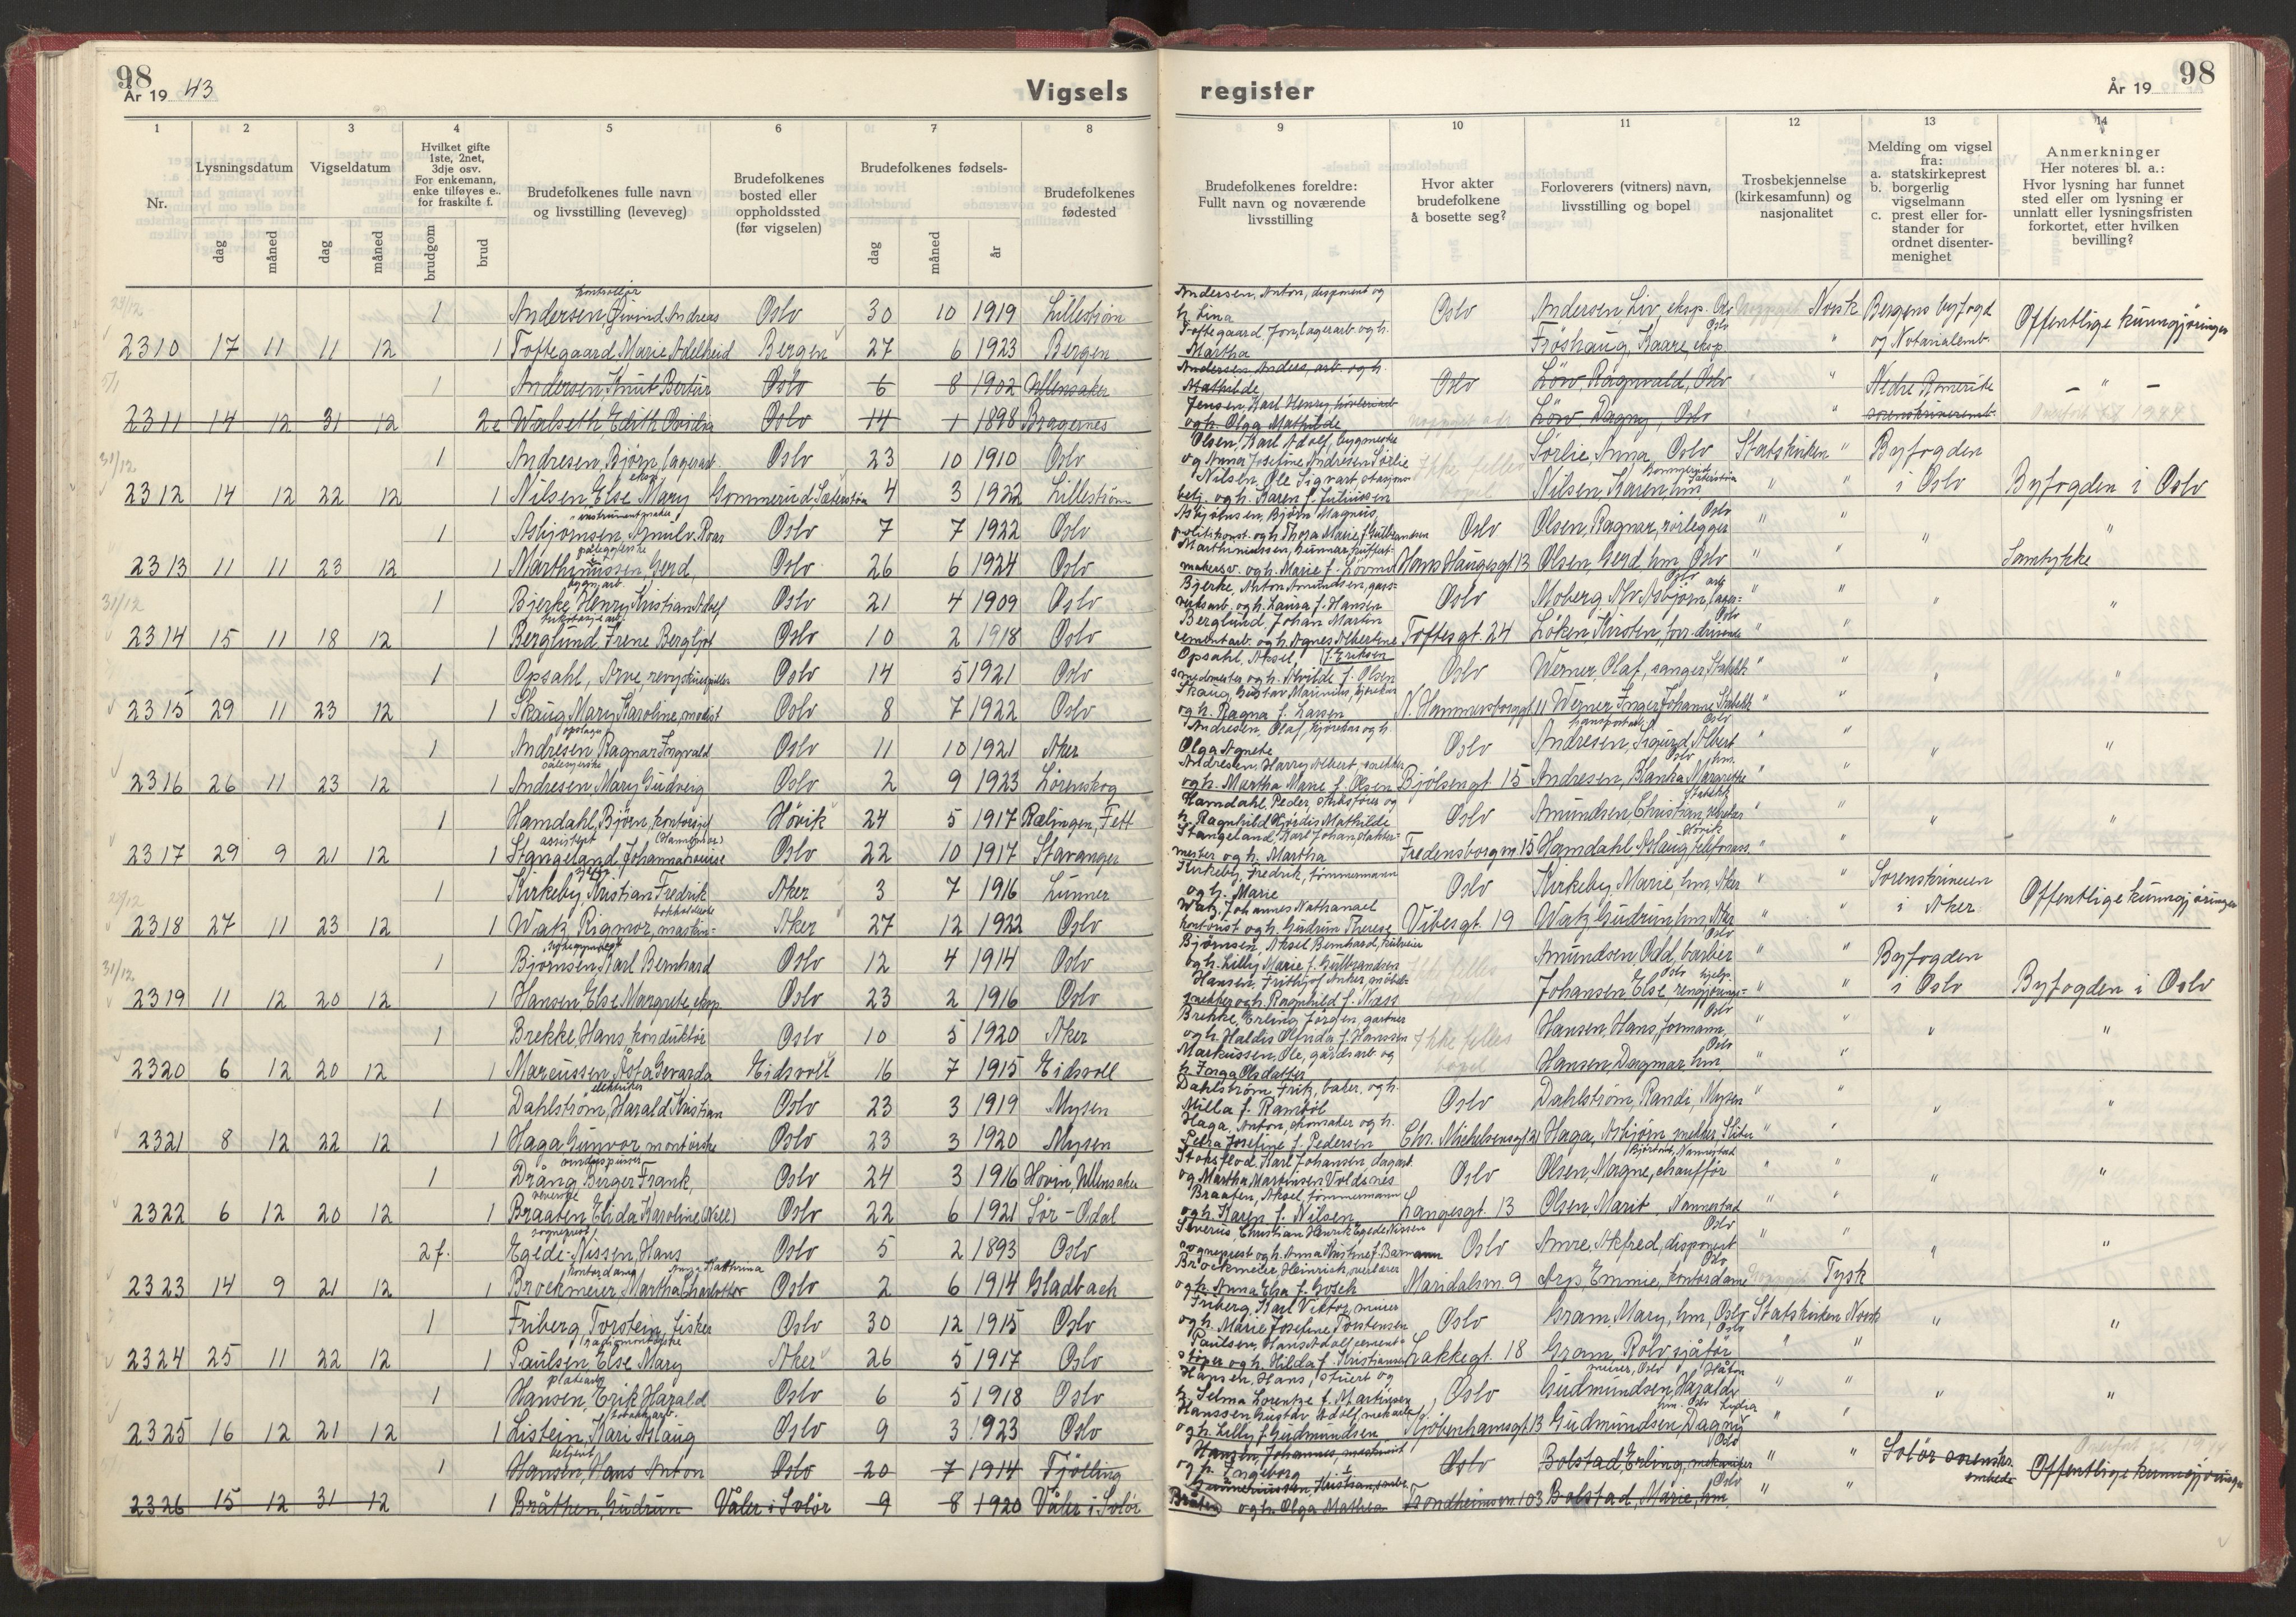 98
År 19 43
Vigsels
register
98
År 19
1 2 3 4 5 6 7 8 9 10 11 12 13 14
Nr.
Lysningsdatum
dag måned
Vigseldatum
dag måned
Hvilket gifte
1ste, 2net,
3dje osv.
For enkemann,
enke tilføyes e..
for fraskilte f.
brudgom brud
Brudefolkenes fulle navn
og livsstilling (leveveg)
Brudefolkenes
bosted eller
oppholdssted
(før vigselen)
Brudefolkenes fødsels-
dag måned år
Brudefolkenes
fødested
Brudefolkenes foreldre:
Fullt navn og noværende
livsstilling
Hvor akter
brudefolkene
å bosette seg?
Forloverers (vitners) navn,
livsstilling og bopel
Trosbekjennelse
(kirkesamfunn) og
nasjonalitet
Melding om vigsel
fra:
a. statskirkeprest
b. borgerlig
vigselmann
c. prest eller for-
stander for
ordnet disenter-
menighet
Anmerkninger
Her noteres bl. a.:
Hvor lysning har funnet
sted eller om lysning er
unnlatt eller lysningsfristen
forkortet, etter hvilken
bevilling?
1 Andersen, Øivind Andreas Oslo 30 10 1919 Lillestrøm Andersen, Anton, disponent og h. Lina Oslo Andersen Liv, eksp. Oslo Norsk Bergens byfogd
2310 17 11 11 12 1 Toftegaard Marie Adelheid Bergen 27 6 1923 Bergen Toftegaard Jon, lagerarb. og h. Martha Frøshaug, Kaare, eksp. Oslo " og Notarialemb. Offentlige kunngjøringer
1 Andersen Knut Bertür Oslo 6 8 1902 Ullensaker Andersen Anders, arb. og h. Mathilde Oslo Löw, Ragnvald, Oslo " " Nedre Romerike — " —
2311 14 12 31 12 2e Walseth, Edith Oslo 14 1 1898 Bragernes Jensen, Karl Henry og h. Olga Mathilde Löw Dagny, Oslo " sorenskriveremb.
31/12 1 Andresen, Bjørn, lagerarb. Oslo 23 10 1910 Oslo Olsen, Karl Adolf, bygmester og Anna Josefine Andresen Sørlie Ikke felles Sørlie, Anna, Oslo Statskirken " Byfogden
2312 14 12 22 12 1 Nilsen, Else Mary Gommerud, Sæterstøa 4 3 1922 Lillestrøm Nilsen, Ole Sigvart, stasjons- betj. og h. Karen f. Juliussen bopel Nilsen, Karen, hm " " i Oslo Byfogden i Oslo
1 Asbjørnsen, Arnulv Roar instrumentmaker Oslo 7 7 1922 Oslo Asbjørnsen, Bjørn Magnus, politikonst. og h. Thora Marie f. Gulbrandsen Oslo Olsen, Ragnar, rørlegger Oslo " " "
2313 11 11 23 12 1 Marthinussen, Gerd, Oslo 26 6 1924 Oslo Marthiniussen, Gunnar, og h. Marie f. Hans Haugesgt 13 Olsen, Gerd hm, Oslo " " " Samtykke
31/12 1 Bjerke, Henry Kristian Adolf bygn.arb. Oslo 21 4 1909 Oslo Bjerke, Anton Amundsen, gass- verksarb. og h. Laura f. Hansen Oslo Moberg Alv Asbjørn, lager- arb. Oslo " " " "
2314 15 11 18 12 1 Berglund, Irene Bergljot Oslo 10 2 1918 Oslo Berglund, Johan Martin sementarb. og h. Agnes Albertine f. Eriksen Toftesgt. 24 Løken, Kirsten, Oslo " "
1 Opsahl, Arve, revyskuespiller Oslo 14 5 1921 Oslo Opsahl, Aksel, smedmester og h. Alvilde f. Olsen Oslo Werner, Olaf, sanger, Stabekk " " " "
2315 29 11 23 12 1 Skaug Mary Karoline, modist Oslo 8 7 1922 Oslo Skaug, Gustav Mauritius, og h. Ragna f. Larsen N. Hammersborggt 11 Werner Inger Johanne Stabekk " "
1 Andresen Ragnar Ingvald Oslo 11 10 1921 Aker Andresen, Olaf, kjørekar og h. Olga Agnete Oslo Andresen, Sigurd Albert Oslo " " " "
2316 26 11 23 12 1 Andresen, Mary Gudveig Oslo 2 9 1923 Lørenskog Andresen, Harry Albert, snekker og h. Martha Marie f. Olsen Bjølsengt. 15 Andresen, Blanka Margrethe Oslo hm. " "
1 Hamdahl, Bjørn, kontorsjef Høvik 24 5 1917 Rælingen, Fett Hamdahl, Peder, og h. Ragnhild Hjørdis Mathilde Oslo Amundsen Christian, Stabekk " " " "
2317 29 9 21 12 1 Stangeland, Johanna Louise assistent Oslo 22 10 1917 Stavanger Stangeland Karl Johan, slakter- mester og h. Martha Fredensborgvn. 15 Hamdahl Aslaug, telefonass. Høvik "
1 Kirkeby, Kristian Fredrik Aker 3 7 1916 Lunner Kirkeby, Fredrik, tømmermann og h. Marie Oslo Kirkeby, Marie hm, Aker " " Sorenskriveren
2318 27 11 23 12 1 Watz Rigmor, maskin- bokholderske Aker 27 12 1922 Oslo Watz, Johannes Nathanael kontorist og h. Gudrun Therese Vibesgt 19 Watz Gudrun hm, Aker " " i Aker Offentlige kunngjøringer
31/12 1 Bjørnsen, Karl Bernhard Oslo 12 4 1914 Oslo Bjørnsen, Aksel Bernhard, og h. Lilly Marie f. Gulbrandsen Ikke felles Amundsen Odd, barber Oslo " " Byfogden
2319 11 12 20 12 1 Hansen, Else Margrete, eksp. Oslo 23 2 1916 Oslo Hansen, Frithjof Anker, møbel- snekker og h. Ragnhild f. Næss Johansen Else, rengjørings- hjelp. Oslo " " i Oslo Byfogden i Oslo
1 Brekke, Hans, konduktør Oslo 10 5 1920 Aker Brekke, Erling Jørgen, gartner og h. Haldis Olfrida f. Hanssen Ikke felles Hansen, Hans, formann, Oslo " " " "
2320 6 12 20 12 1 Marcussen, Åsta Gevarda Eidsvoll 16 7 1915 Eidsvoll Markussen, Ole, gårdsarb. og h. Olsdatter bopel Hansen, Dagmar hm Oslo " "
1 Dahlström, Harald Kristian elektriker Oslo 23 3 1919 Mysen Dahlström, Frik, baker, og h. Milla f. Oslo Dahlström, Randi, Mysen " " " "
2321 8 12 22 12 1 Haga Gunvor, Oslo 23 3 1920 Mysen Haga, Anton, skomaker og h. Petra Josefine f. Pedersen Chr. Michelsensgt Haga, Asbjørn, snekker, " "
1 Drång, Birger Frank, vinduspusser Oslo 24 3 1916 Hovin, Ullensaker Stoksflod, Karl Johansen, og Martha Martinsen Voldsnes Oslo Olsen, Magne, chauffør " " " "
2322 6 12 20 12 1 Braaten, Elida Karoline (Nell) Oslo 22 6 1921 Sør-Odal Braaten, Aksel, tømmermann og h. Karen f. Nilsen Langesgt. 13 Olsen, Marit, Nannestad " "
2f. Egede-Nissen, Hans sogneprest Oslo 5 2 1893 Oslo Severus, Christian Henrik Egede Nissen sogneprest og h. Anna Kristine f. Barmann Oslo Amre, Alfred, disponent Oslo " " " "
2323 14 9 21 12 1 Brockmeier, Martha Charlotter Anna Kathrina kontordame Oslo 2 6 1914 Gladbach Brockmeier, Heinrich, overlærer og h. Anna Elsa f. Maridalsvn. 9 Arp, Emmie, kontordame Oslo Tysk
1 Friberg, Torstein, fisker Oslo 30 12 1915 Oslo Friberg, Karl Viktor, murer og h. Marie Josefine Torstensen Oslo Gram, Mary, hm, Oslo Statskirken Norsk " "
2324 25 11 22 12 1 Paulsen, Else Mary radiomontørske Aker 26 5 1917 Oslo Paulsen, Hans Adolf, sement- støper og h. Hilda f. Kristiansen Lakkegt. 18 Gram, Rolv, sjåfør Oslo " "
1 Hansen, Erik Harald Oslo 6 5 1918 Oslo Hansen, Hans, stuert og h. Selma Lorentze f. Martinsen Oslo Gudmundsen, Harald murer, Oslo " " " "
2325 16 12 21 12 1 Listein, Kari Aslaug Oslo 9 3 1923 Oslo Hanssen Gustav Adolf, og h. Lilly f. Gudmundsen Kjøbenhavnsgt. 13 Gudmundsen, Dagny Lydia hm. Oslo " "
1 Hansen, Hans Anton betjent Oslo 20 7 1914 Tjølling Hansen, Johannes, maskinist og h. Ingeborg Oslo Bolstad, Erling, mekaniker Oslo " " Solør sorenskr. embede Offentlige kunngjøringer
2326 15 12 31 12 1 Bråthen, Gudrun Våler i Solør 9 8 1920 Våler i Solør Bråten og h. Olga Mathea Trondheimsvn. 103 Bolstad, Marie, hm. Oslo " "